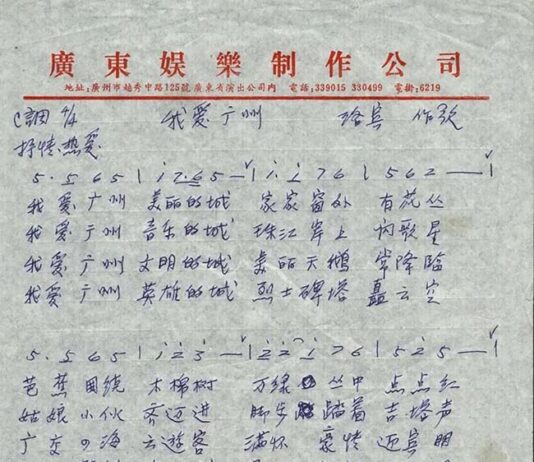 廣東娱樂制作公司
地址:廣州市越秀中路125號廣東省演出公司内 電話:339015 330499 電掛:6219
C調 4/4 我爱广州 珞宾 作歌
抒情.热爱
5. 5 6 5 | i 7.6 5 — | i. i 7 6 | 5 6 2 — |
我爱广州 美丽的城 家家窗外 有花丛
我爱广州 音乐的城 珠江岸上 闪歌星
我爱广州 文明的城 美丽天鹅 常降临
我爱广州 英雄的城 烈士碑塔 矗云空
5. 5 6 5 | i 2 3 — | 2 2 i 7 6 | 5 2 5 — |
芭蕉围绕 木棉树 万绿丛中 点点红
姑娘小伙 齐迈进 脚步踏着 吉塔声
广交四海 云遊客 满怀豪情 迎宾朋